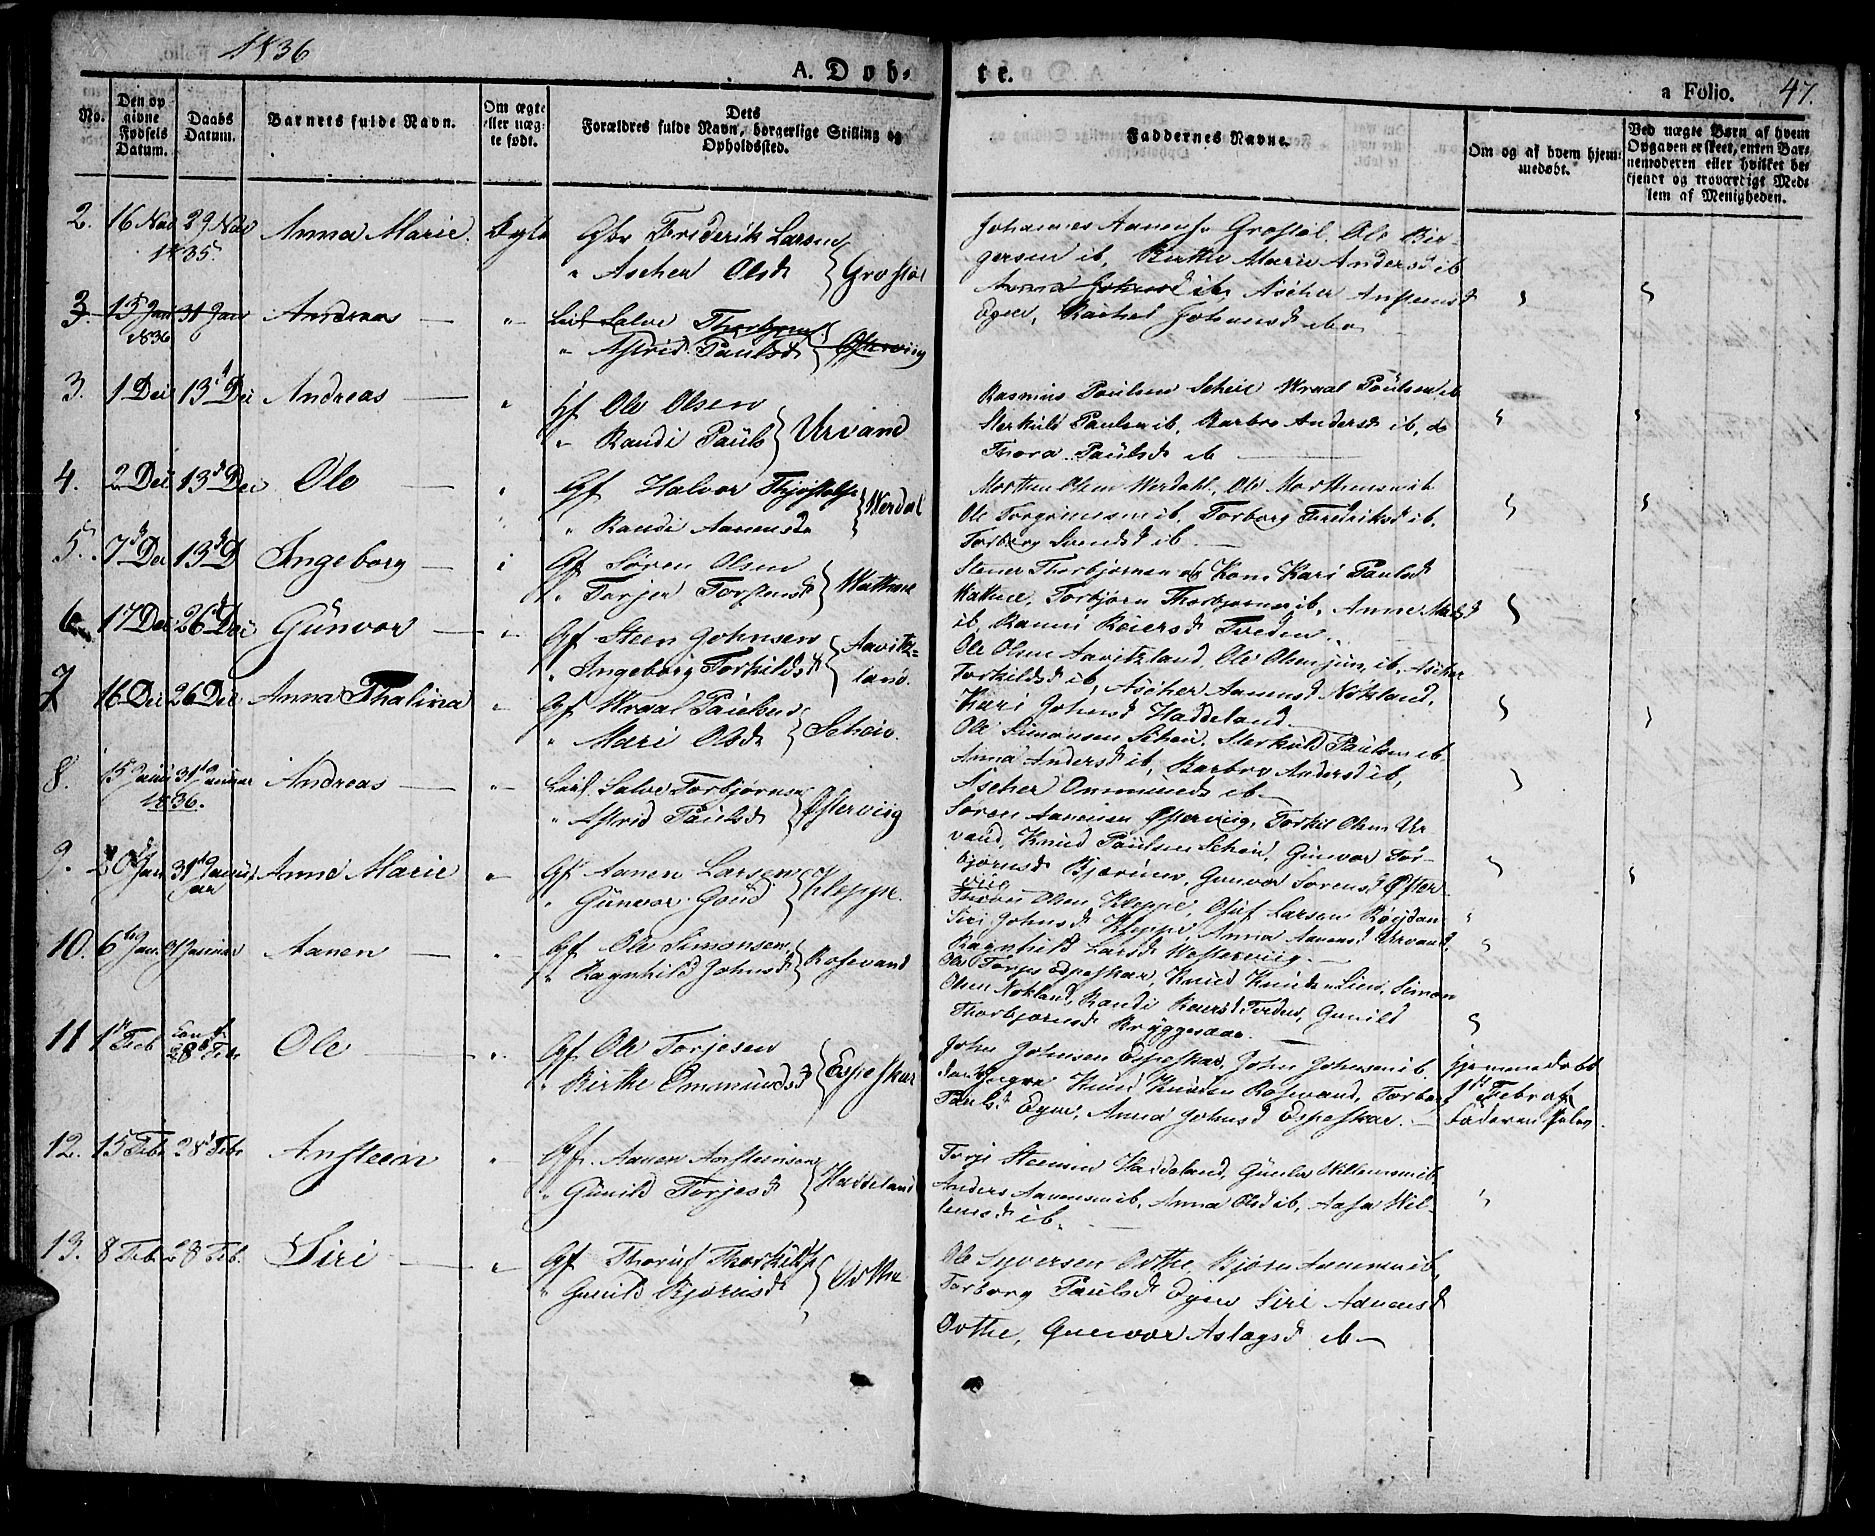 1836
A. Døb-
te.
a Folio. 47.
No.
Den op
givne
Fødsels
Datum.
Daabs
Datum.
Barnets fulde Navn.
Om ægte
eller uæg-
te født.
Dets
Forældres fulde Navn, borgerlige Stilling og
Opholdssted.
Faddernes Navne.
Om og af hvem hjem-
medøbt.
Ved uægte Børn af hvem
Opgaven er skeet, enten Bar-
nemoderen eller hvilket be-
kjendt og troværdigt Med-
lem af Menigheden.
2. 16 Nov 29 Nov Anna Marie. Ægte Gbr Frederik Larsen
1835. " Ascher Olsd Grostøl
Johannes Aanens. Grostøl. Ole Bir-
gersen ib, Birthe Marie Andersd ib
Anna Johnsd ib, Ascher Anstensd
Egen, Rachel Johansd ib
3. 15 Jan 31 Jan Andreas — " Leil Salve Thorbjørns.
1836 " Astrid Paulsd Østerviig
3. 1 Dec 13 Dec Andreas — " Gf Ole Olsen
" Randi Pauls Urvand
Rasmus Paulsen Scheie Wraal Poulsen ib
Sterkuld Paulsen ib, Barbro Andersd ib, &
Thora Paulsd ib —
4. 2 Dec 13 Dec Ole — " Gf Halvor Thjostolfs
" Randi Aanensd Werdal
Morthen Olsen Werdahl, Ole Morthensen ib
Ole Torgrimsen ib, Torborg Fredriksd ib,
Torborg Svendsd ib —
5. 7 Dec 13 D Ingeborg — " Gf Søren Olsen
" Torjer Torstensd Wathne
Stener Thorbjørnsen og Kone Kari Paulsd
Wathne, Torbjørn Thorbjørnsen ib, Anne
ib, Ranni Reiersd Tveden.
6 17 Dec 26 Dec Gunvor — " Gf Steen Johnsen
" Ingeborg Torkildsd Aavitz-
land.
Ole Olsen Aavitzland, Ole Olsen jun. ib, Ascher
Torkildsd ib, Ascher Aanensd Nøkland,
Kari Johnsd Haddeland —
7 16 Dec 26 Dec Anna Thalina " Gf Wraal Paulsen
" Mari Olsd Scheie.
Ole Simonsen Scheie, Sterkuld Paulsen ib
Anna Andersd ib, Barbro Andersd ib,
Ascher Ommundsd ib —
8. 15 Januar 31 Januar Andreas — " Leil. Salve Torbjørnsen
1836. " Astrid Paulsd Østerviig
Søren Aanensen Østerviig, Torkil Olsen Ur
vand, Knud Paulsen Scheie, Gunvor Tor-
bjørnsd Bjørunes, Gunvor Sørensd Øster
viig
9. 20 Jan 31 Janu Anne Marie " Gf Aanen Larsen
ar " Gunvor Gaud Kleppe.
Olsen Kleppe, Oluf Larsen Røejdan
Siri Johnsd Kleppe, Anna Aanensd Urvand,
Ragnhild Larsd Westerviig. —
10. 6 Jan. 31 Januar Aanen — " Gf Ole Simonsen
" Ragnhild Johnsd Rosevand
Ole Torjes Espeskar, Knud Knudsen Lien, Simon
Olsen Nøkland, Randi Reiersd Tveden, Gunild
Thorbjørnsd Bryggesaae —
11 1 Feb 28 Feb Ole — " Gf Ole Torjesen
" Birthe Ommundsd Espeskar
John Johnsen Espeskar, John Johnsen ib.
Knud Knudsen Rosevand, Torborg
Paulsd Egen, Anna Johnsd Espeskar. —
hjemmedøbt
1 Feb af
Faderen selv
12. 15 Feb. 28 Feb. Ansteen " Gf. Aanen Ansteensen
" Gunild Torjesd Haddeland
Torje Steensen Haddeland, Gunla Willumsen ib,
Anders Aanensen ib, Anna Olsd ib, Aasa Wil-
lumsd ib. —
13. 8 Feb. 28 Feb. Siri — " Gf Thoruf Thorkilds.
" Gunild Bjørnsd Ovthe
Ole Syversen Ovthe, Bjørn Aanensen ib,
Torborg Paulsd Egen Siri Aanensd
Ovthe, Gunvor Aslagsd ib —